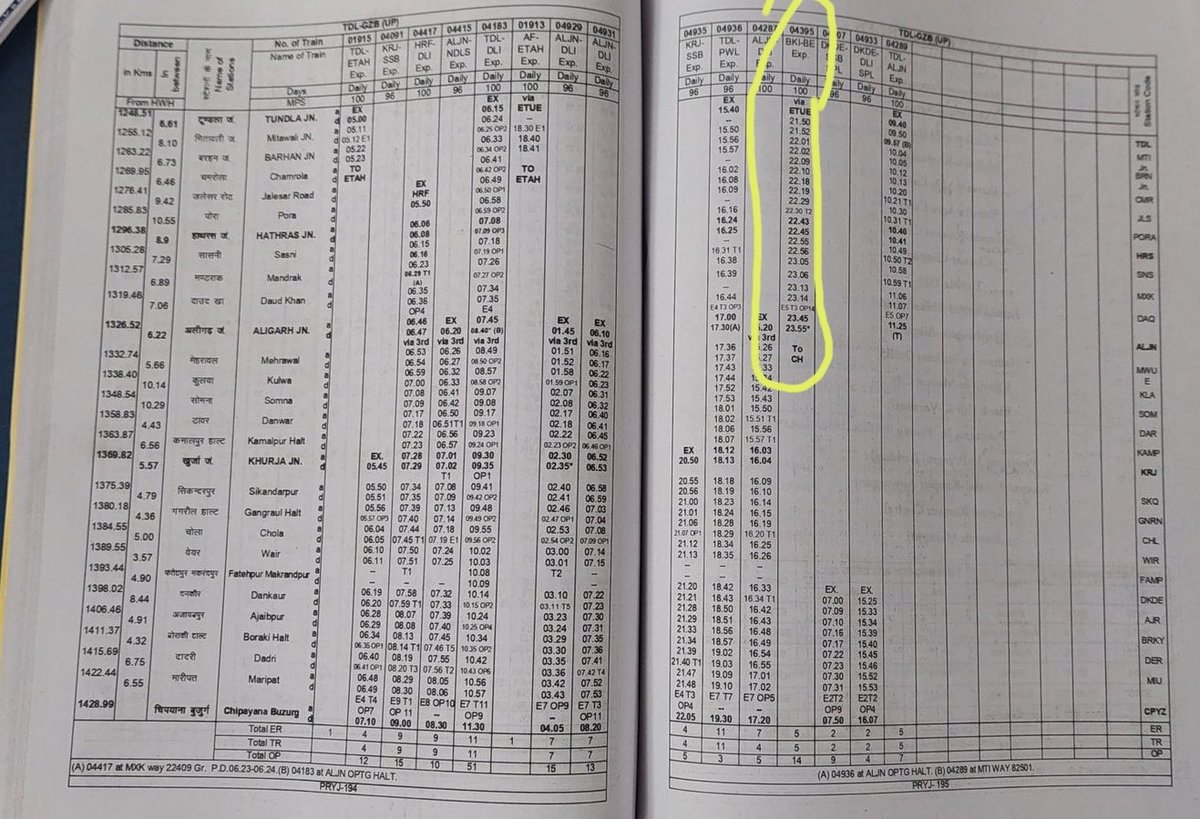 TDL-GZB (UP)
Distance
In Kms
In between
स्टेशनों के नाम
Name of Stations
No. of Train
Name of Train
Days
MPS
From HWH
01915 04091 04417 04415 04183 01913 04929 04931
TDL-ETAH Exp. KRJ-SSB Exp. HRF-DLI Exp. ALJN-NDLS Exp. TDL-DLI Exp. AF-ETAH Exp. ALJN-DLI Exp. ALJN-DLI Exp.
Daily Daily Daily Daily Daily Daily Daily Daily
100 96 100 96 100 100 96 96
1248.51 टूण्डला जं. TUNDLA JN. a d
6.61
1255.12 मितावली जं. Mitawali JN. a d
8.10
1263.22 बरहन जं. BARHAN JN a d
6.73
1269.95 चमरोला Chamrola a d
6.46
1276.41 जलेसर रोट Jalesar Road a d
9.42
1285.83 पोरा Pora a d
10.55
1296.38 हाथरस जं. HATHRAS JN. a d
8.9
1305.28 सासनी Sasni a d
7.29
1312.57 मण्डराक Mandrak a d
6.89
1319.46 दाउद खा Daud Khan a d
7.06
1326.52 अलीगढ़ जं. ALIGARH JN. a d
6.22
1332.74 मेहरावल Mehrawal a d
5.66
1338.40 कुलवा Kulwa a d
10.14
1348.54 सोमना Somna a d
10.29
1358.83 डांवर Danwar a d
4.43
1363.87 कमालपुर हाल्ट Kamalpur Halt a d
6.56
1369.82 खुर्जा जं. KHURJA JN. a d
5.57
1375.39 सिकन्दरपुर Sikandarpur a d
4.79
1380.18 गंगरौल हाल्ट Gangraul Halt a d
4.36
1384.55 चोला Chola a d
5.00
1389.55 वेयर Wair a d
3.57
1393.44 फतेहपुर मकरंदपुर Fatehpur Makrandpur a d
4.90
1398.02 दनकौर Dankaur a d
8.44
1406.46 अजायबपुर Ajaibpur a d
4.91
1411.37 बोराकी हाल्ट Boraki Halt a d
4.32
1415.69 दादरी Dadri a d
6.75
1422.44 मारीपत Maripat a d
6.55
1428.99 चिपयाना बुजुर्ग Chipayana Buzurg a d
EX 05.00 05.11 05.12 E1 05.22 05.23 TO ETAH
EX. 05.45 05.50 05.51 05.56 05.57 OP3 06.04 06.05 06.10 06.11 – – 06.19 06.20 06.28 06.29 06.34 06.35 OP1 06.40 06.41 OP1 06.48 06.49 E4 T4 OP7 07.10
EX HRF 05.50 06.06 06.08 06.15 06.16 06.23 06.29 T1 (A) 06.35 06.36 OP4 06.46 06.47 via 3rd 06.53 06.54 06.59 07.00 07.08 07.09 07.17 07.18 07.22 07.23 07.28 07.29 07.34 07.35 07.39 07.40 07.44 07.45 T1 07.50 07.51 T1 – 07.58 07.59 T1 08.07 08.08 08.13 08.14 T1 08.19 08.20 T3 08.29 08.30 E9 T1 OP 11 09.00
EX 06.20 via 3rd 06.26 06.27 06.32 06.33 06.41 06.42 06.50 06.51T1 06.56 06.57 07.01 07.02 T1 07.08 07.09 07.13 07.14 07.18 07.19 E1 07.24 07.25 – – 07.32 07.33 07.39 07.40 07.45 07.46 T5 07.55 07.56 T2 08.05 08.06 E8 OP10 – 08.30
EX 06.15 06.24 06.25 OP2 06.33 06.34 OP2 06.41 06.42 OP2 06.49 06.50 OP1 06.58 06.59 OP2 07.08 07.09 OP3 07.18 07.19 OP1 07.26 07.27 OP2 07.34 07.35 E4 07.45 08.40* (B) via 3rd 08.49 08.50 OP2 08.57 08.58 OP2 09.07 09.08 09.17 09.18 OP1 09.23 09.24 OP1 09.30 09.35 OP1 09.41 09.42 OP2 09.48 09.49 OP2 09.55 09.56 OP2 10.02 10.03 10.08 10.09 10.14 10.15 OP2 10.24 10.25 OP4 10.34 10.35 OP2 10.42 10.43 OP6 10.56 10.57 E7 T11 OP9 11.30
via ETUE – 18.30 E1 18.40 18.41 TO ETAH
EX 01.45 via 3rd 01.51 01.52 01.58 01.59 OP1 02.07 02.08 02.17 02.18 02.22 02.23 OP2 02.30 02.35* 02.40 02.41 02.46 02.47 OP1 02.53 02.54 OP2 03.00 03.01 T2 – 03.10 03.11 T5 03.23 03.24 03.29 03.30 03.35 03.36 03.42 03.43 E7 OP9 – 04.05
EX 06.10 via 3rd 06.16 06.17 06.22 06.23 06.31 06.32 06.40 06.41 06.45 06.46 OP1 06.52 06.53 06.58 06.59 07.03 07.04 07.08 07.09 OP1 07.14 07.15 – – 07.22 07.23 07.30 07.31 07.35 07.36 07.41 07.42 T4 07.52 07.53 E7 T3 OP11 08.20
Total ER 1 4 9 9 11 1 7 7
Total TR 4 9 9 11 7 7
Total OP 12 15 10 51 15 13
(A) 04417 at MXK way 22409 Gr. P.D.06.23-06.24.(B) 04183 at ALJN OPTG HALT.
PRYJ-194
TDL-GZB (UP)
04935 04936 04287 04395 07 04933 04289
KRJ-SSB Exp. TDL-PWL Exp. ALJ Exp. BKI-BE Exp. DKDE-SSB SPL DKDE-DLI SPL TDL-ALJN Exp.
Daily Daily Daily Daily Daily Daily Daily
96 96 100 100 96 96 100
स्टेशन कोड
Station Code
EX 20.50 20.55 20.56 21.00 21.01 21.06 21.07 OP1 21.12 21.13 – – 21.20 21.21 21.28 21.29 21.33 21.34 21.39 21.40 T1 21.47 21.48 E4 T3 OP4 22.05
EX 15.40 15.50 15.56 15.57 – 16.02 16.08 16.09 – 16.16 16.24 16.25 – 16.31 T1 16.38 – 16.39 – 16.44 E4 T3 OP3 17.00 17.30(A) 17.36 17.37 17.43 17.44 17.52 17.53 18.01 18.02 18.06 18.07 18.12 18.13 18.18 18.19 18.23 18.24 18.28 18.29 18.34 18.35 – – 18.42 18.43 18.50 18.51 18.56 18.57 19.02 19.03 19.09 19.10 E7 T7 – 19.30
EX 15.42 15.43 15.50 15.51 T1 15.56 15.57 T1 16.03 16.04 16.09 16.10 16.14 16.15 16.19 16.20 T1 16.25 16.26 – – 16.33 16.34 T1 16.42 16.43 16.48 16.49 16.54 16.55 17.01 17.02 E7 OP5 – 17.20
via ETUE 21.50 21.52 22.01 22.02 22.09 22.10 22.18 22.19 22.29 22.30 T2 22.43 22.45 22.55 22.56 23.05 23.06 23.13 23.14 E5 T3 OP14 23.45 23.55* To CH
EX. 07.00 07.09 07.10 07.16 07.17 07.22 07.23 07.30 07.31 E2T2 OP9 07.50
EX. 15.25 15.33 15.34 15.39 15.40 15.45 15.46 15.52 15.53 E2T2 OP4 16.07
EX 09.40 09.50 09.57 (B) 10.04 10.05 10.12 10.13 10.20 10.21 T1 10.30 10.31 T1 10.40 10.41 10.49 10.50 T2 10.58 10.59 T1 11.06 11.07 E5 OP7 11.25 (T)
TDL
MTI Jn.
BRN Jn.
CMR
JLS
PORA
HRS
SNS
MXK
DAQ
ALJN
MWU E
KLA
SOM
DAR
KAMP
KRJ
SKQ
GNRN
CHL
WIR
FAMP
DKDE
AJR
BRKY
DER
MIU
CPYZ
4 11 7 5 2 2 5 ER
4 11 4 5 2 2 5 TR
5 3 5 14 9 4 7 OP
(A) 04936 at ALJN OPTG HALT. (B) 04289 at MTI WAY 82501.
PRYJ- 195